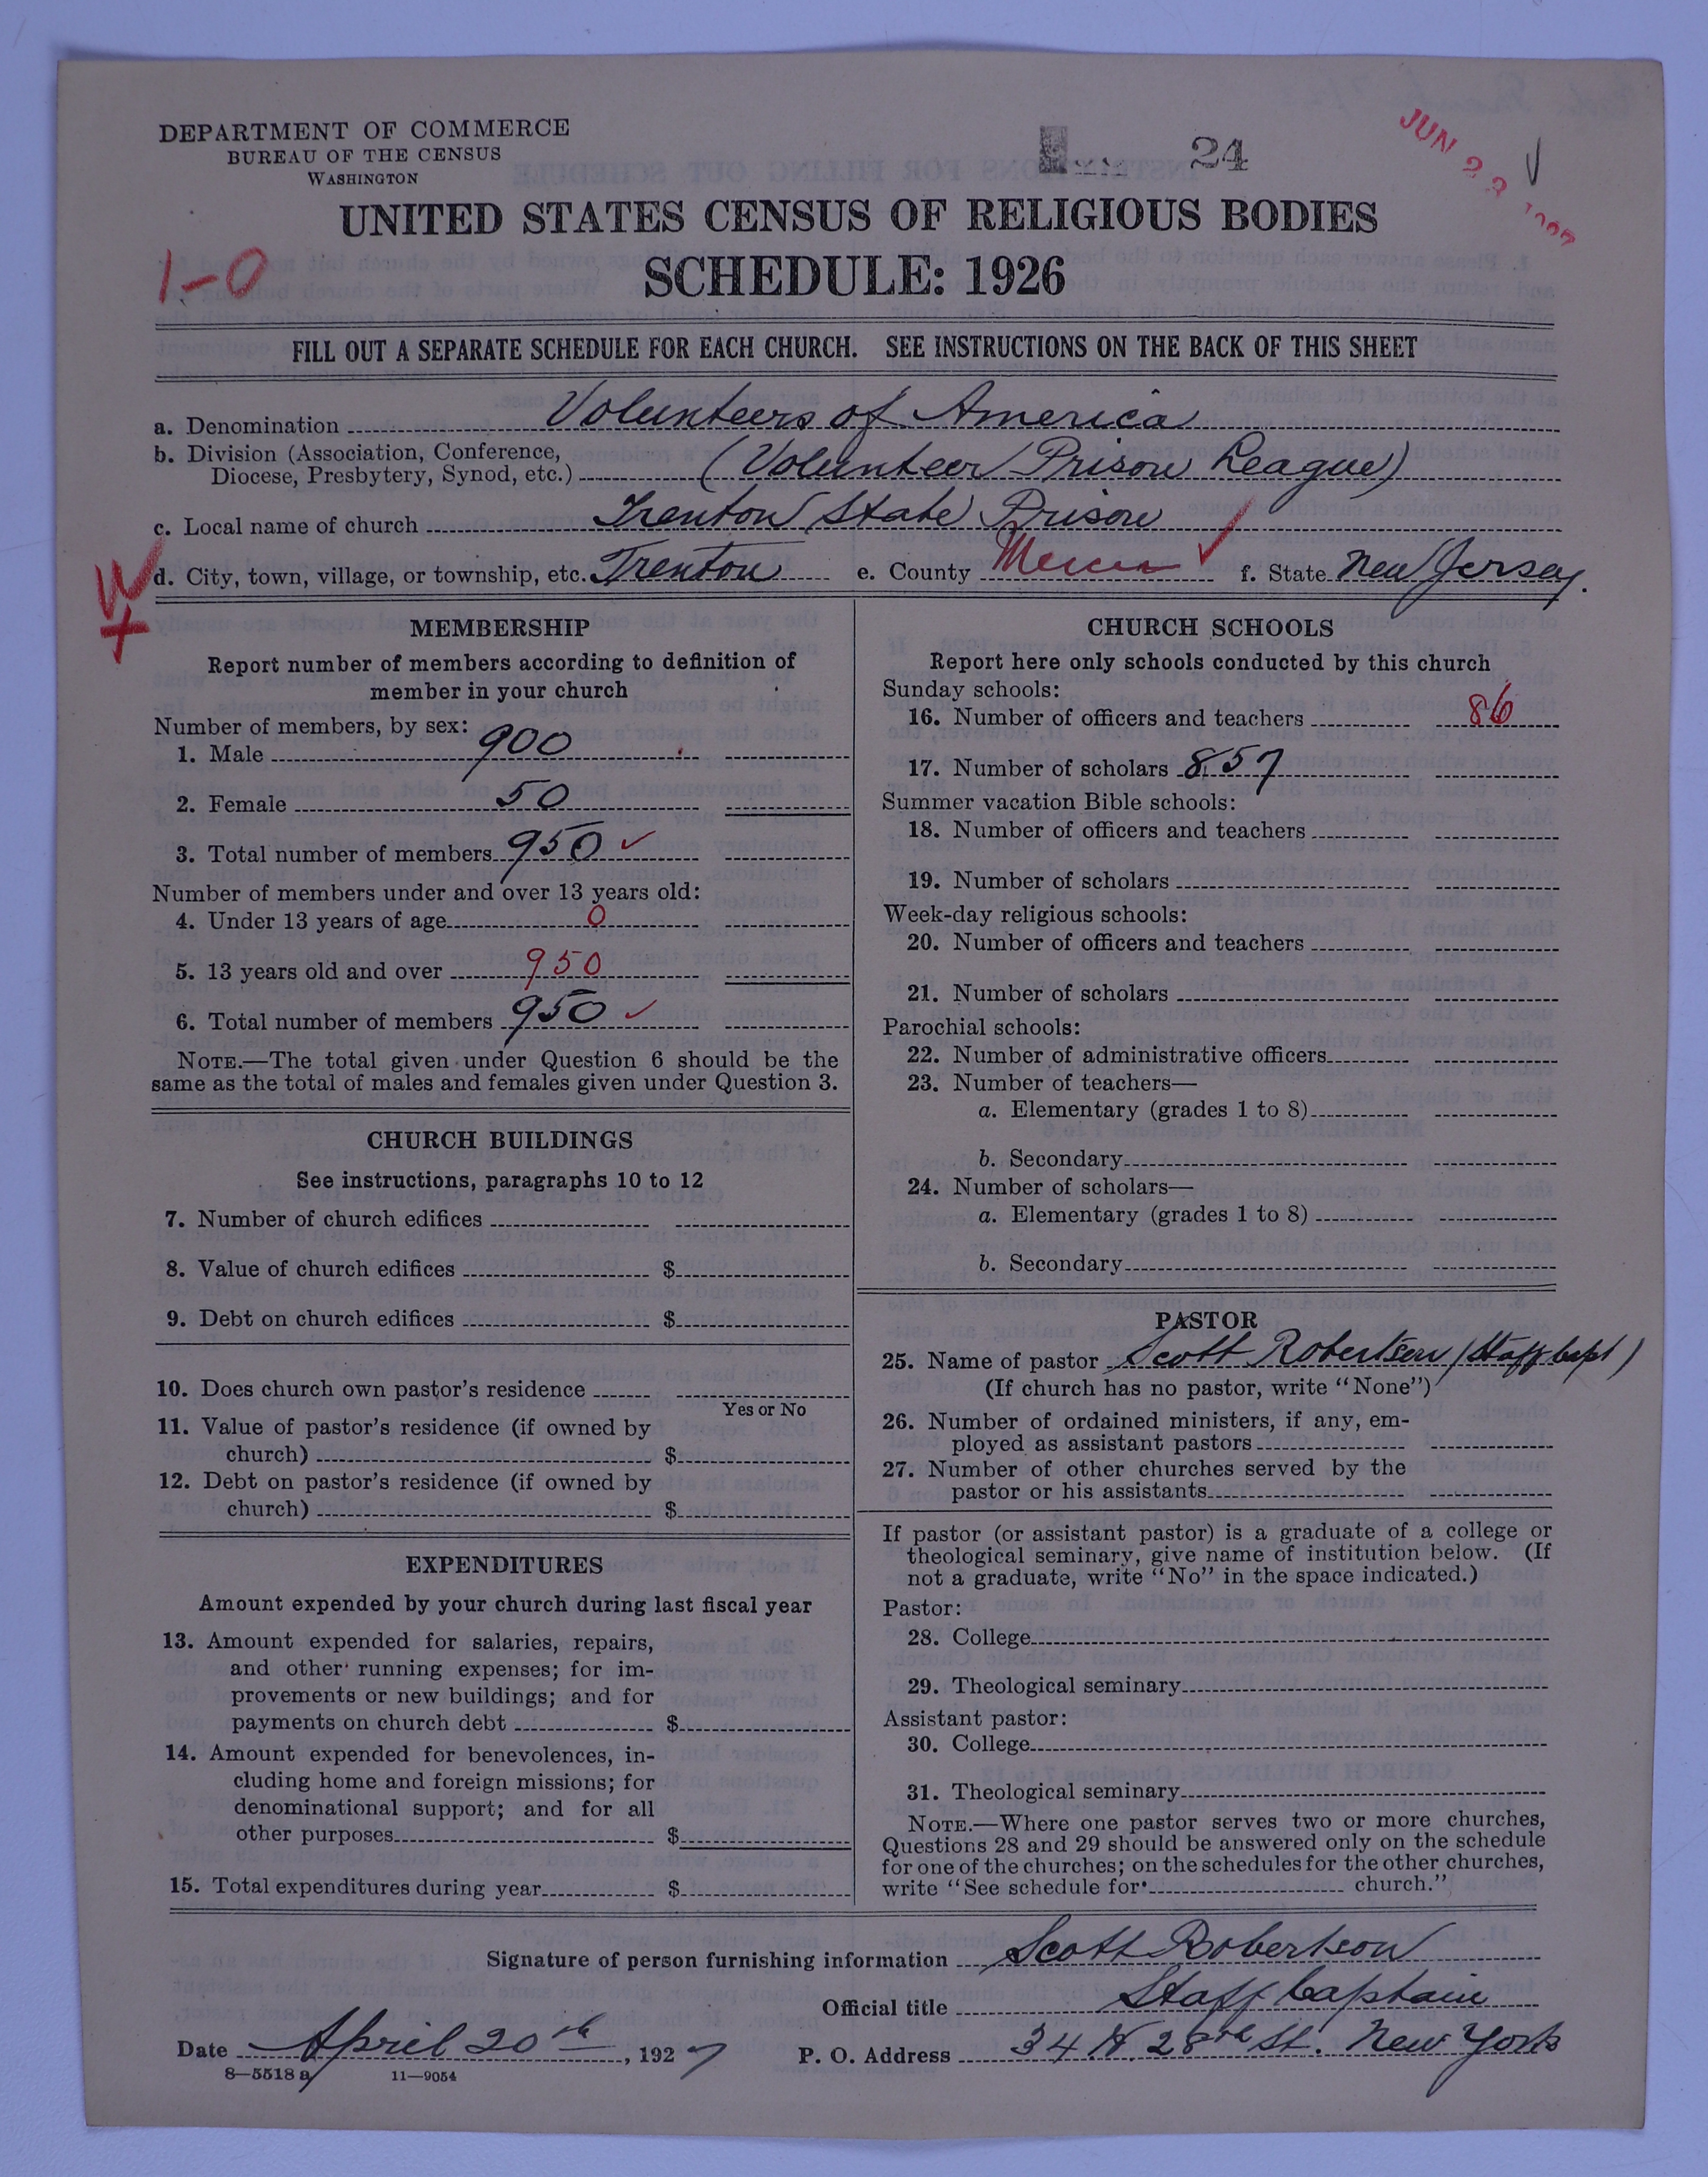 DEPARTMENT OF COMMERCE
BUREAU OF THE CENSUS
WASHINGTON
24
JUN 23 1927
UNITED STATES CENSUS OF RELIGIOUS BODIES
1-0
SCHEDULE: 1926
FILL OUT A SEPARATE SCHEDULE FOR EACH CHURCH. SEE INSTRUCTIONS ON THE BACK OF THIS SHEET
a. Denomination Volunteers of America
b. Division (Association, Conference,
Diocese, Presbytery, Synod, etc.) (Volunteer Prison League)
c. Local name of church Trenton State Prison
W
d. City, town, village, or township, etc. Trenton e. County Mercer f. State New Jersey.
MEMBERSHIP
Report number of members according to definition of
member in your church
Number of members, by sex:
1. Male 900
2. Female 50
3. Total number of members 950
Number of members under and over 13 years old:
4. Under 13 years of age 0
5. 13 years old and over 950
6. Total number of members 950
NOTE.—The total given under Question 6 should be the
same as the total of males and females given under Question 3.
CHURCH BUILDINGS
See instructions, paragraphs 10 to 12
7. Number of church edifices
8. Value of church edifices $
9. Debt on church edifices $
10. Does church own pastor's residence
Yes or No
11. Value of pastor's residence (if owned by
church) $
12. Debt on pastor's residence (if owned by
church) $
EXPENDITURES
Amount expended by your church during last fiscal year
13. Amount expended for salaries, repairs,
and other running expenses; for im-
provements or new buildings; and for
payments on church debt $
14. Amount expended for benevolences, in-
cluding home and foreign missions; for
denominational support; and for all
other purposes $
15. Total expenditures during year $
CHURCH SCHOOLS
Report here only schools conducted by this church
Sunday schools:
16. Number of officers and teachers 86
17. Number of scholars 857
Summer vacation Bible schools:
18. Number of officers and teachers
19. Number of scholars
Week-day religious schools:
20. Number of officers and teachers
21. Number of scholars
Parochial schools:
22. Number of administrative officers
23. Number of teachers—
a. Elementary (grades 1 to 8)
b. Secondary
24. Number of scholars—
a. Elementary (grades 1 to 8)
b. Secondary
PASTOR
25. Name of pastor Scott Robertson (Staff Capt)
(If church has no pastor, write "None")
26. Number of ordained ministers, if any, em-
ployed as assistant pastors
27. Number of other churches served by the
pastor or his assistants
If pastor (or assistant pastor) is a graduate of a college or
theological seminary, give name of institution below. (If
not a graduate, write "No" in the space indicated.)
Pastor:
28. College
29. Theological seminary
Assistant pastor:
30. College
31. Theological seminary
NOTE.—Where one pastor serves two or more churches,
Questions 28 and 29 should be answered only on the schedule
for one of the churches; on the schedules for the other churches,
write "See schedule for church."
Signature of person furnishing information Scott Robertson
Official title Staff Captain
Date April 20th, 1927 P. O. Address 34 W. 28th St. New York
8—5518 a 11—9054